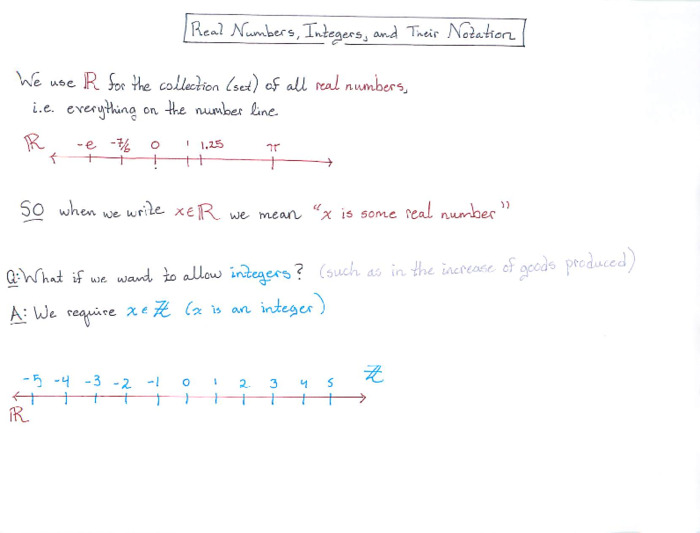 Real Numbers, Integers, and Their Notation
We use ℝ for the collection (set) of all real numbers,
i.e. everything on the number line.
ℝ -e -7/6 0 1 1.25 π
SO when we write x∈ℝ we mean "x is some real number"
Q: What if we want to allow integers? (such as in the increase of goods produced)
A: We require x∈ℤ (x is an integer)
-5 -4 -3 -2 -1 0 1 2 3 4 5 ℤ
ℝ